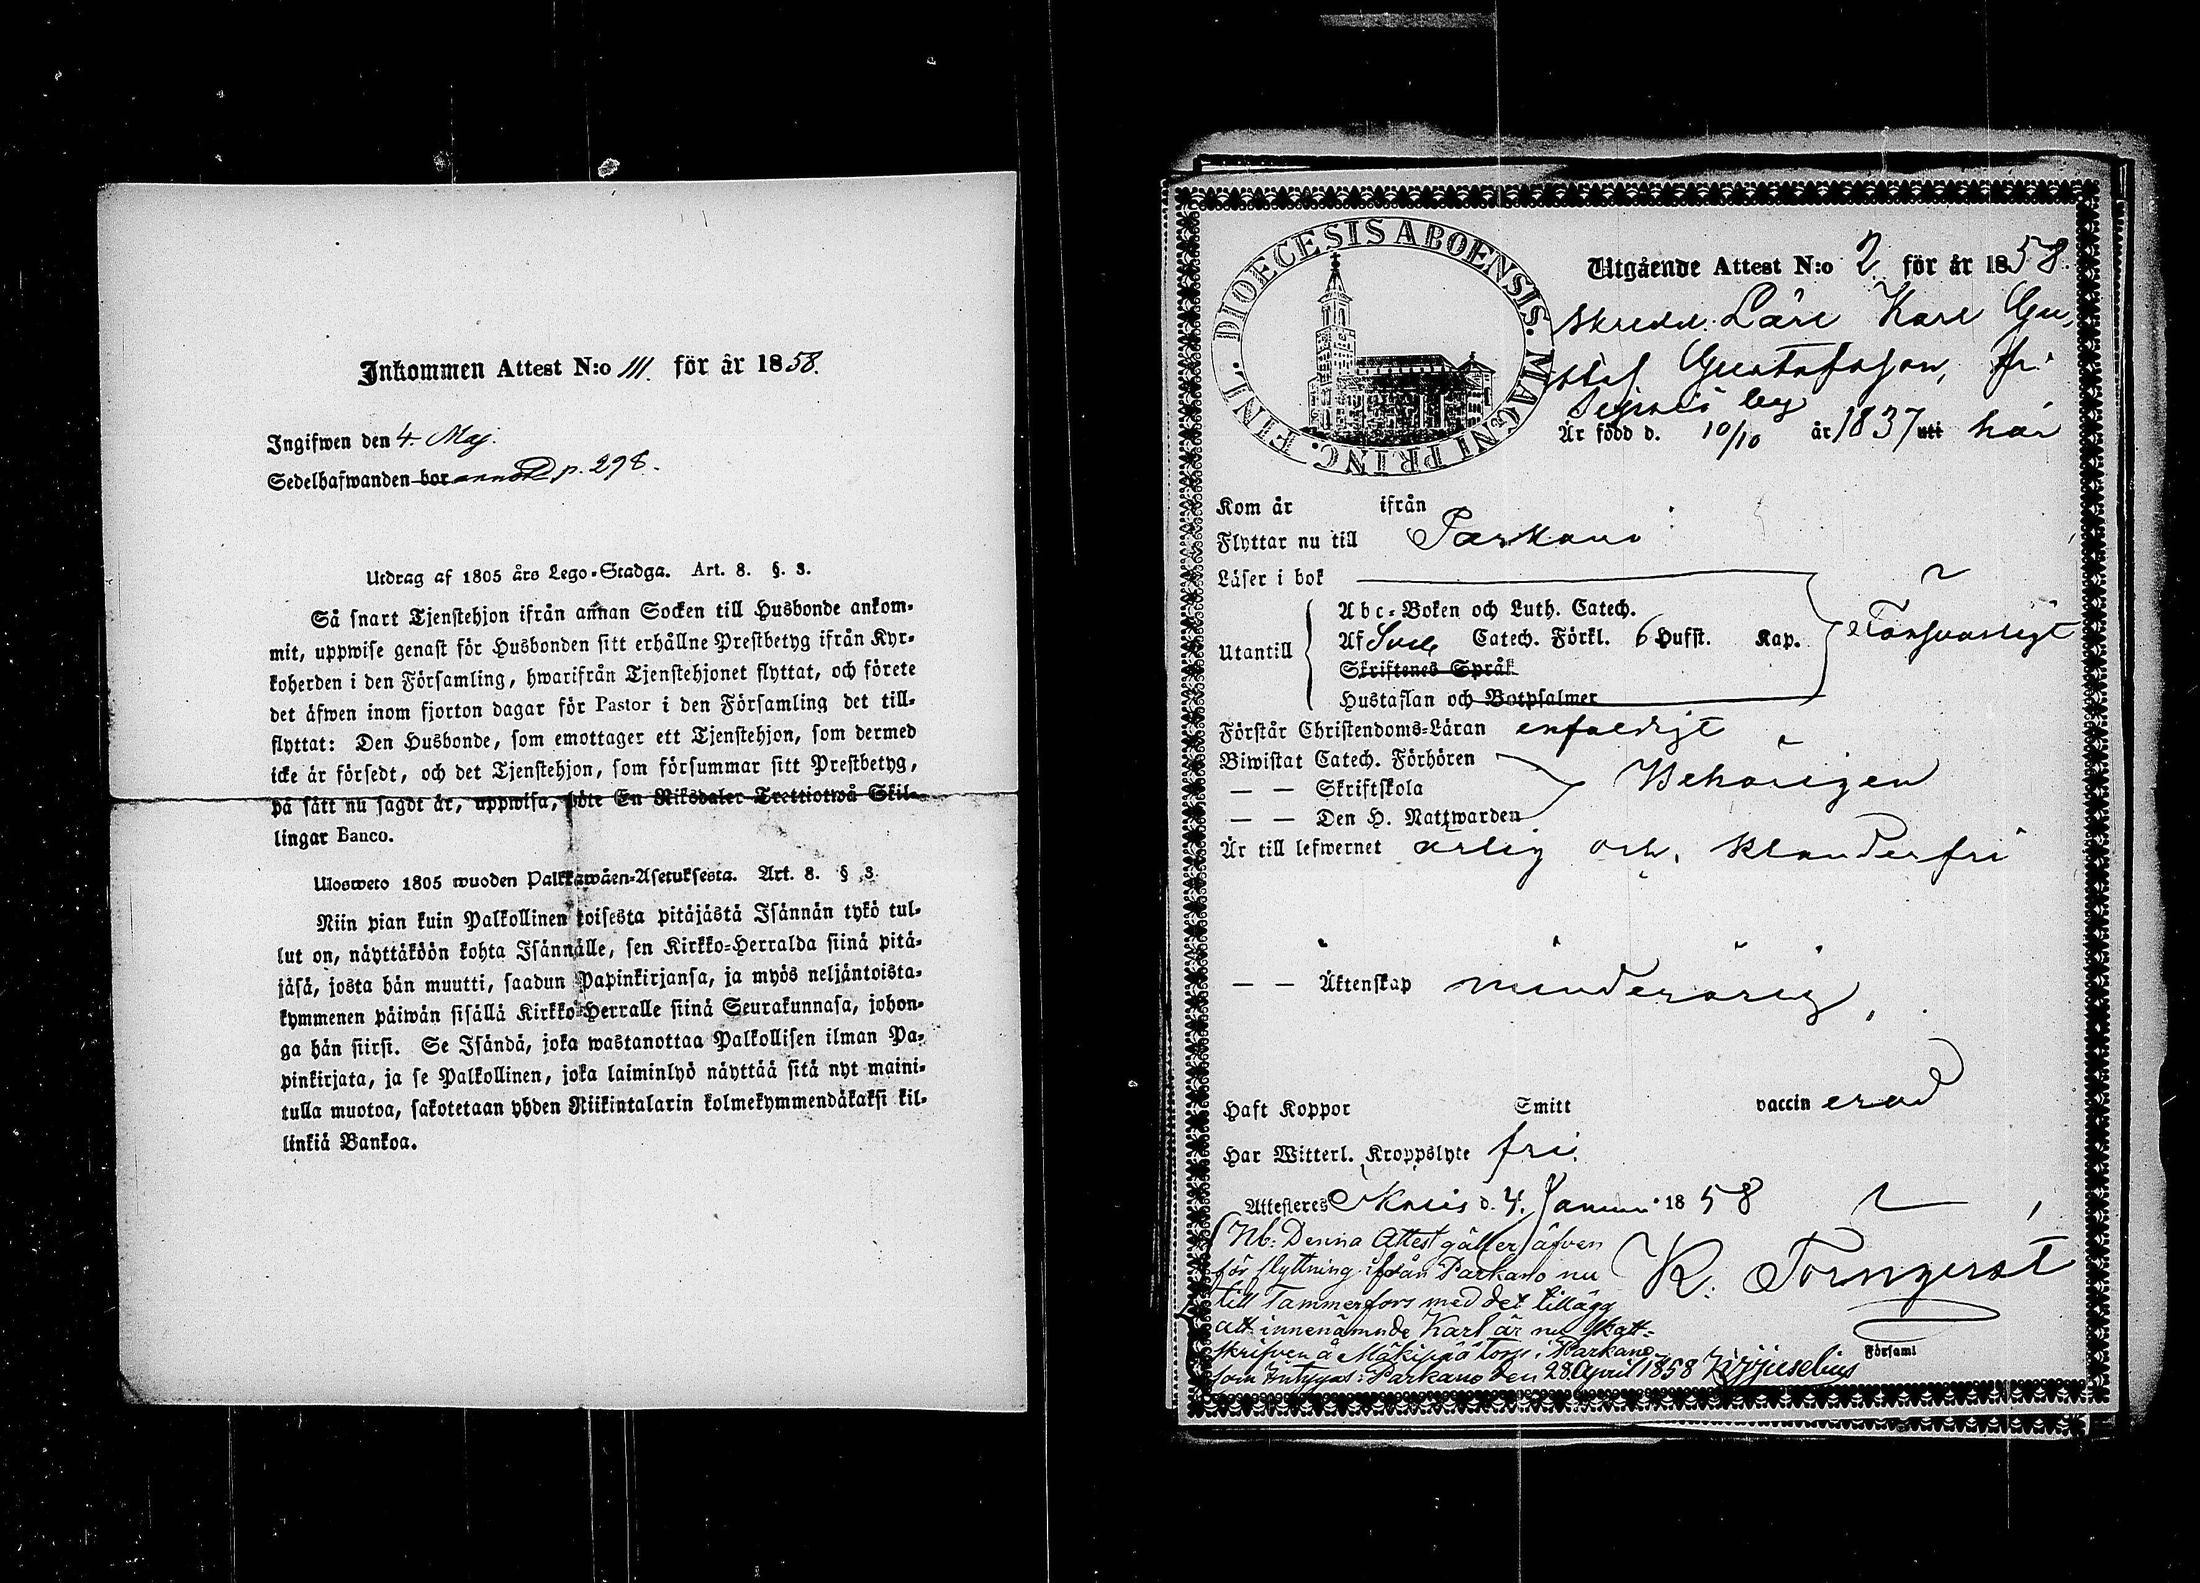 Inkommen Attest N:o 111. för år 1858.
Ingifwen den 4. Maj.
Sedelhafwanden bor p. 298.
Utdrag af 1805 års Lego-Stadga. Art. 8. §. 3.
Så snart Tjenstehjon ifrån annan Socken till Husbonde ankom-
mit, uppwise genast för Husbonden sitt erhållne Prestbetyg ifrån Kyr-
koherden i den Församling, hwarifrån Tjenstehjonet flyttat, och förete
det äfwen inom fjorton dagar för Pastor i den Församling det till-
flyttat: Den Husbonde, som emottager ett Tjenstehjon, som dermed
icke är försedt, och det Tjenstehjon, som försummar sitt Prestbetyg,
på sätt nu sagdt är, uppwisa, böte En Riksdaler Trettiotwå Skil-
lingar Banco.
Ulosweto 1805 wuoden Palkkawäen-Asetuksesta. Art. 8. § 3.
Niin pian kuin Palkollinen toisesta pitäjästä Isännän tykö tul-
lut on, näyttäköön kohta Isännälle, sen Kirkko-Herralda siinä pitä-
jäsä, josta hän muutti, saadun Papinkirjansa, ja myös neljäntoista-
kymmenen päiwän sisällä Kirkko-Herralle siinä Seurakunnasa, johon-
ga hän siirsi. Se Isändä, joka wastanottaa Palkollisen ilman Pa-
pinkirjata, ja se Palkollinen, joka laiminlyö näyttää sitä nyt maini-
tulla muotoa, sakotetaan yhden Riikintalarin kolmekymmendäkaksi kil-
linkiä Bankoa.
DIOECESIS ABOENSIS. MAGNI PRINC. FINL.
Utgående Attest N:o 2. för år 1858.
Skredd. Lärl Karl Gu-
staf Gustafsson, fr.
by
Är född d. 10/10 år 1837 uti här
Kom år ifrån
Flyttar nu till Parkano
Läser i bok
Utantill
Abc-Boken och Luth. Catech.
Af Sveb Catech. Förkl. 6 Hufst. Kap.
försvarligt
Skriftenes Språk
Hustaflan och Botpsalmer
Förstår Christendoms-Läran enfaldigt
Biwistat Catech. Förhören
— — Skriftskola
Behörigen
— — Den H. Nattwarden
Är till lefwernet ärlig och klanderfri
— — Äktenskap minderårig
Haft Koppor Smitt vaccin erad
Har Witterl. Kroppslyte fri.
Attesteres d. 4. Januari 1858
K. Törnqvist
Församl
Nb: Denna Attest gäller äfven
för flyttning ifrån Parkano nu
till Tammerfors med det tillägg
att innenämnde Karl är nu skatt-
skrifven å Mäkipää torp i Parkano
som intygas: Parkano den 28 April 1858